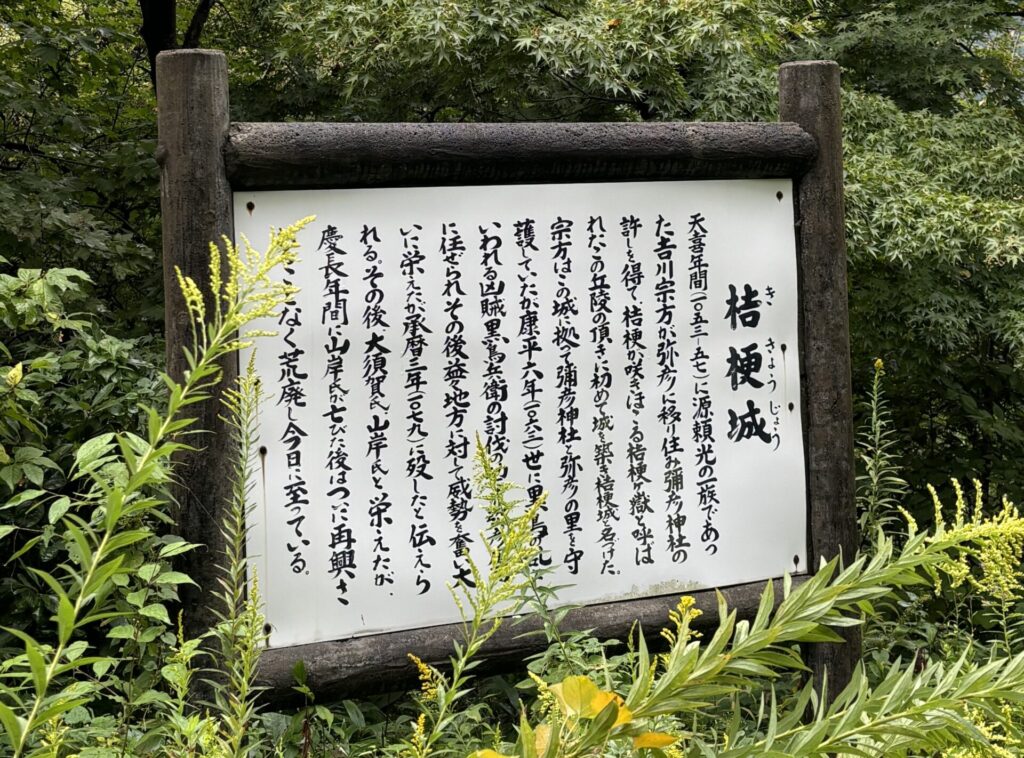 桔梗城
ききょうじょう
天喜年間(一〇五三-五七)に源頼光の一族であっ
た吉川宗方が弥彦に移り住み彌彦神社の
許しを得て桔梗が咲きほこる桔梗が嶽と呼ば
れたこの丘陵の頂きに初めて城を築き桔梗城と名づけた。
宗方はこの城に拠って彌彦神社と弥彦の里を守
護していたが康平六年(一〇六三)世に黒鳥
いわれる凶賊黒鳥兵衛の討伐の
に任ぜられその後益々地方に対して威勢を奮い大
いに栄えたが承暦三年(一〇七九)に歿したと伝えら
れる。その後大須賀氏山岸氏と栄えたが、
慶長年間に山岸氏が亡びた後はついに再興さ
ことなく荒廃し今日に至っている。